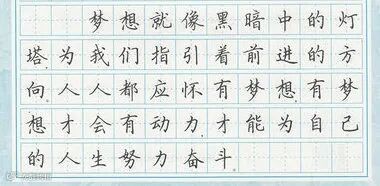 梦想就像黑暗中的灯
塔,为我们指引着前进的方
向。人人都应怀有梦想,有梦
想才会有动力,才能为自己
的人生努力奋斗。